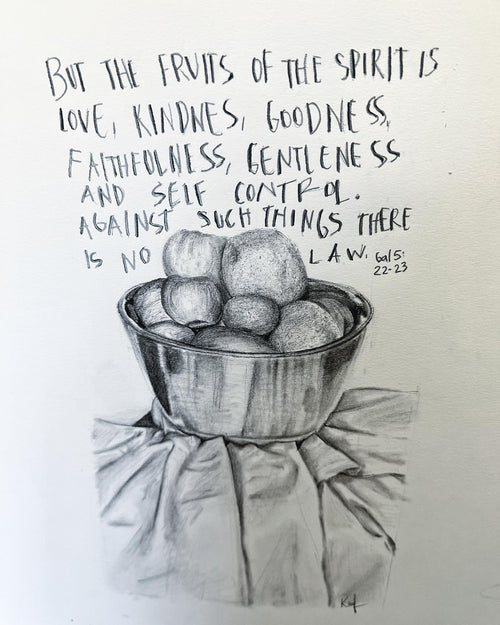 BUT THE FRUITS OF THE SPIRIT IS
LOVE, KINDNES, GOODNESS,
FAITHFULNESS, GENTLENESS
AND SELF CONTROL.
AGAINST SUCH THINGS THERE
IS NO LAW. Gal 5:
22-23